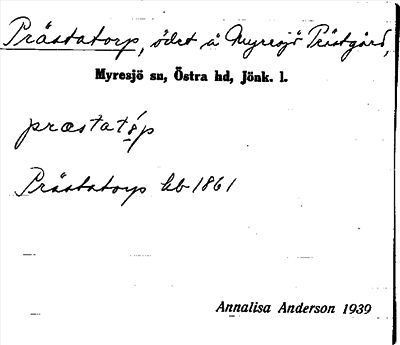 Prästatorp, ödet å Myresjö Prästgård,
Myresjö sn, Östra hd, Jönk. l.
præstatǻp
Prästatorp hb 1861
Annalisa Anderson 1939